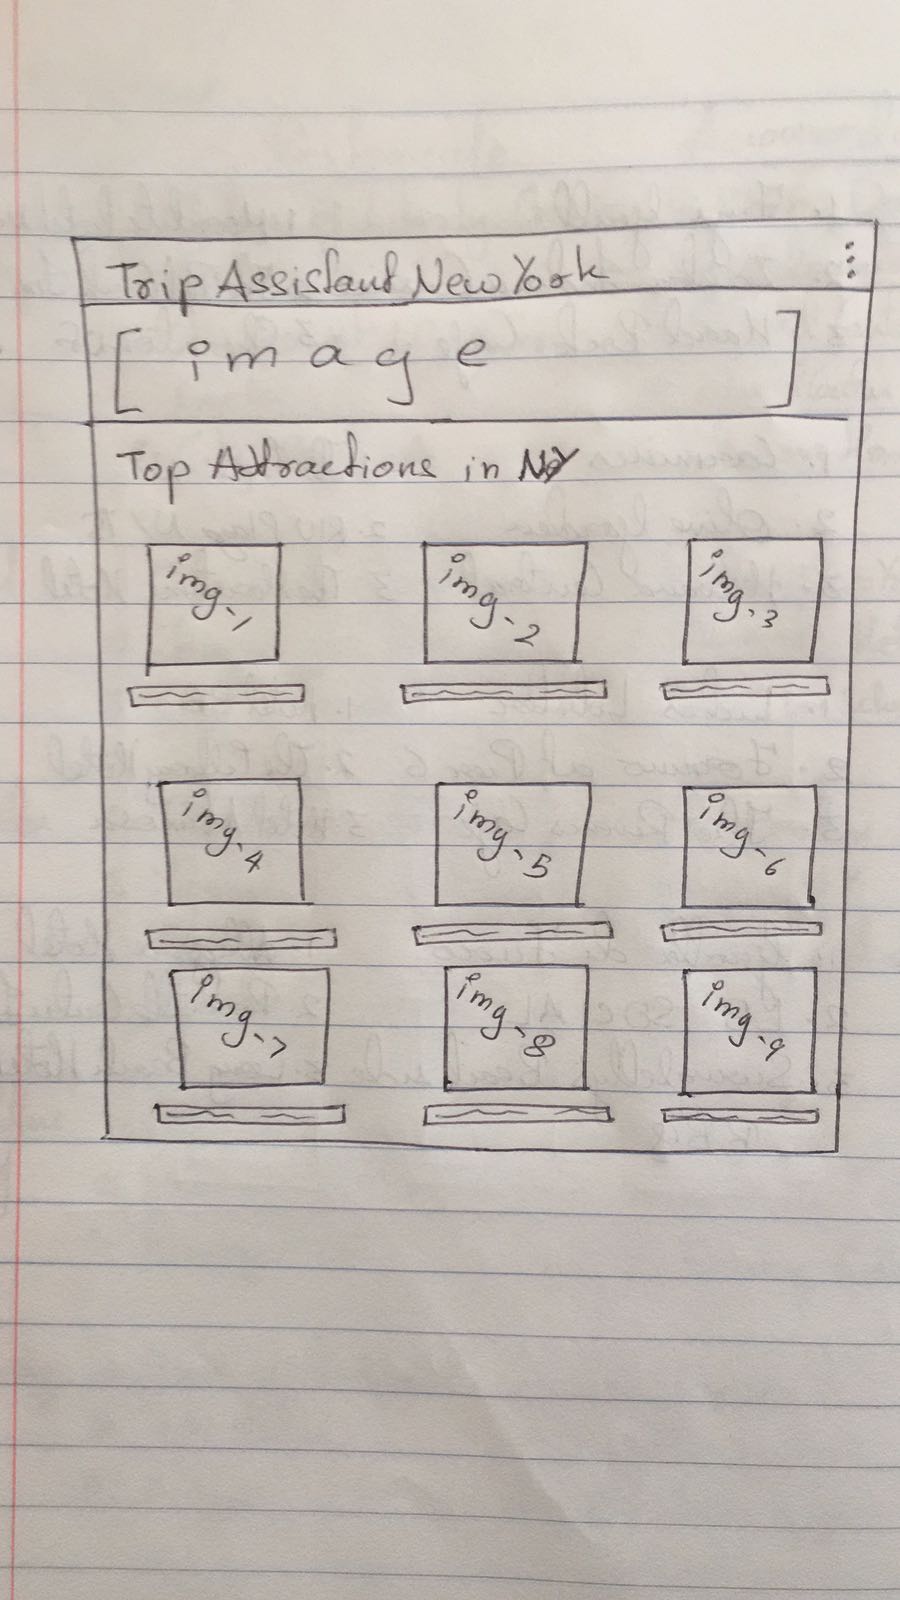 Trip Assistant New York
image
Top Attractions in NY
img-1 img-2 img-3
img-4 img-5 img-6
img-7 img-8 img-9